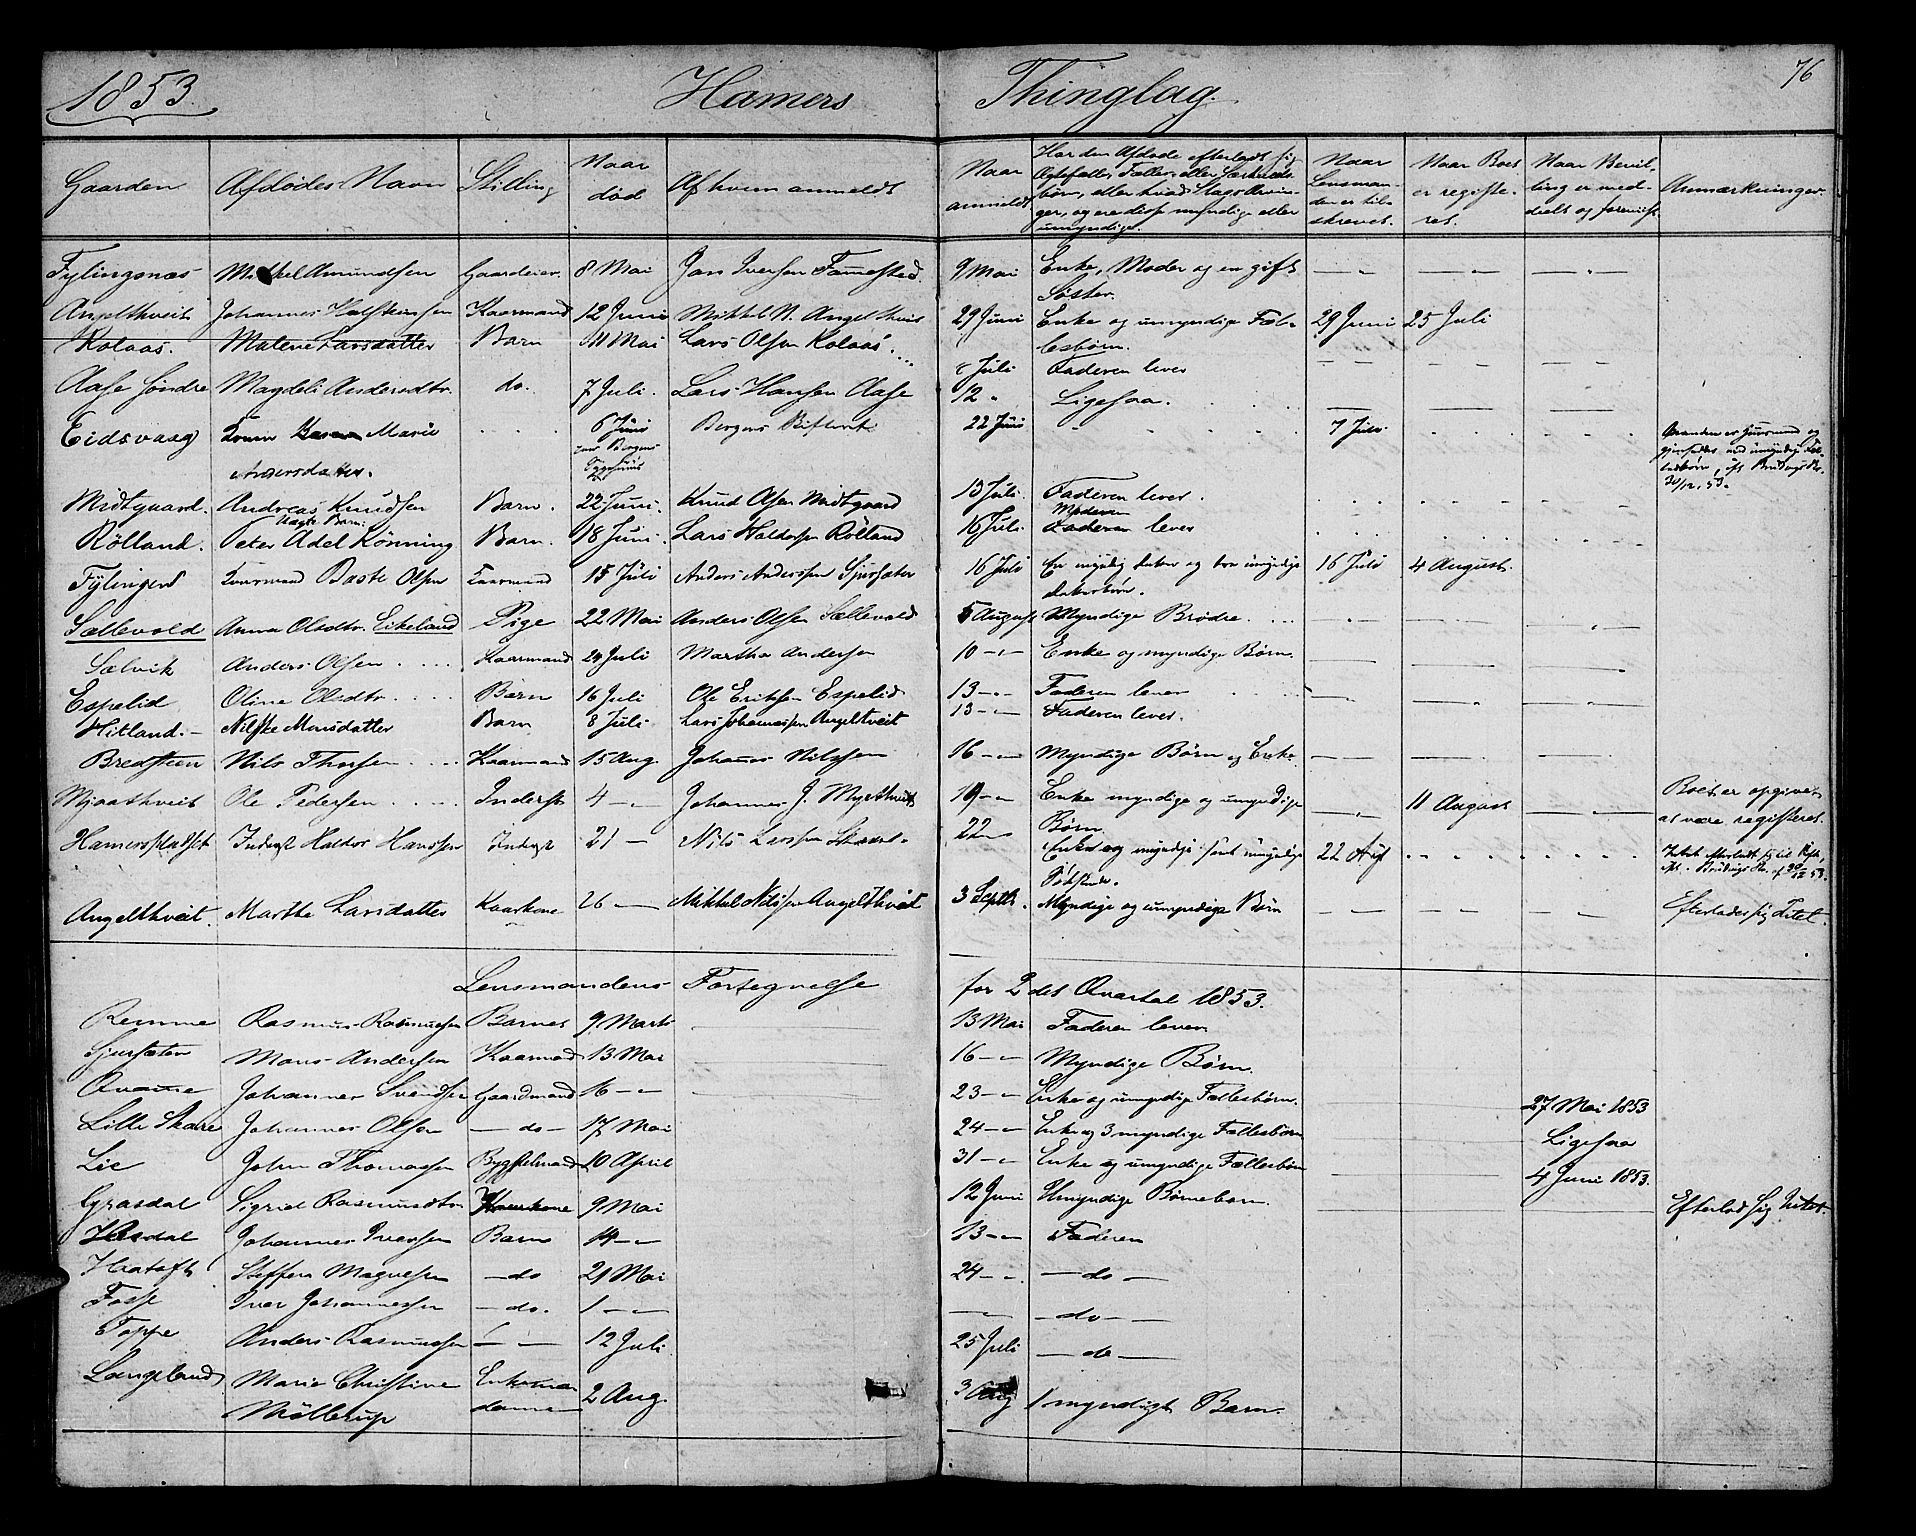 1853.
Hamers Thinglag.
76
Gaarden | Afdödes Navn | Stilling | Naar död | Af hvem anmeldt | Naar anmeldt | Har den Afdöde efterladt sig Ægtefælle, Fælles- eller Særkuldsbörn, eller hvad Slags Arvinger, og ere disse myndige eller umyndige. | Naar Lensmanden er tilskrevet. | Naar Boet er registeret. | Naar Bevilling er meddeelt og | Anmærkninger.
Fylingsnæs | Mikkel Amundsen | Gaardeier | 8 Mai | Jens Iversen | 9 Mai | Enke, Moder og en gift Søster.
Angelthveit | Johannes Halsteinsen | Kaarmand | 12 Juni | Mikkel N. Angelthveit | 29 Juni | Enke og umyndige Fællesbørn. | 29 Juni | 25 Juli
Kolaas. | Malene Larsdatter | Barn | 11 Mai | Lars Olsen Kolaas | Juli | Faderen lever
Aase søndre | Magdeli Andersdtr. | do. | 7 Juli | Lars Hansen Aase | 12 " | Ligesaa.
Eidsvaag | Konen Marie Andersdatter. | 6 Juni paa Bergens Sygehuus | Bergens Skifteret | 22 Juni | 7 Juli
30/12. 53.
Midtgaard. | Andreas Knudsen | Barn. | 22 Juni. | Knud Olsen Midtgaard | 13 Juli. | Faderen lever.
Rølland. | uægte Barn: Peter Adel Kønning | Barn. | 18 Juni. | Lars Haldorsen Rølland | 16 Juli. | Moderen Faderen lever
Fylingen | Kaarmand Baste Olsen | Kaarmand | 15 Juli | Anders Anderssen Sjursæter | 16 Juli | En myndig datter og tre umyndige datterbørn. | 16 Juli | 4 August.
Sællevold | Anna Olsdtr. Eikeland | Pige | 22 Mai | Anders Olsen Sællevold | 5 August | Myndige Brødre.
Sælvik | Anders Olsen | Kaarmand | 24 Juli | Martha Andersen | 10 - " - | Enke og myndige Børn.
Espelid | Oline Olsdtr. | Barn | 16 Juli | Ole Ericksen Espelid | 13 - " - | Faderen lever
Hitland. - | Nilske Monsdatter | Barn | 8 Juli | Lars Johannessen Angeltveit | 13 - " - | Faderen lever.
Bredsteen | Nils Thorsen | Kaarmand | 15 Aug. | Johannes Nilssen | 16 - " - | Myndige Børn og Enke.
Mjaathveit | Ole Pedersen | Inderst | 4 - " - | Johannes J. Mjelthveit | 19 - " - | Enke myndige og umyndige Børn | 11 August | Boet er opgivet at være registeret.
Inderst Haldor Hanssen | Inderst | 21 - | Nils Larssen | 22 - " | Enke og myndige samt umyndige Sødskende. | 22 Aug
Angelthveit. | Marthe Larsdatter | Kaarkone | 26 - | Mikkel Nilssen Angelthveit | 3 Septb. | Myndige og umyndige Børn | Efterlader sig Intet.
Lensmandens Fortegnelse for 2det Qvartal 1853.
Remme | Rasmus Rasmussen | Barnet | 9 Marts | 13 Mai | Faderen lever
Sjursæter | Mons Andersen | Kaarmand | 13 Mai | 16 - " - | Myndige Børn.
Qvamme | Johannes Svendsen | Gaardmand | 16 - " - | 23 - " - | Enke og umyndige Fællesbørn. | 27 Mai 1853
Lille Skare | Johannes Olsen | - do - | 17 Mai | 24 - " - | Enke og 3 myndige Fællesbørn | Ligesaa
Lie | John Thomassen | Bygselmand | 20 April | 31 - " - | Enke og umyndige Fællesbørn | 4 Juni 1853.
Grasdal | Sigrid Rasmusdtr | Kaarkone | 9 Mai | 12 Juni | Umyndige Børnebørn. | Efterlod sig Intet.
Hasdal | Johannes Iversen | Barn | 14 - " - | 13 - " - | Faderen
Haatoft | Steffen Magnesen | - do | 21 Mai | 24 - " - | - do -
Fosse | Iver Johannessen | - do. | 1 - " - | - " - | - do -
Toppe | Anders Rasmussen | - " - | 12 Juli | 25 Juli | - do -
Langeland | Marie Christine Möllerup | Enkemadame | 2 Aug. | 3 Aug | 1 myndigt Barn.